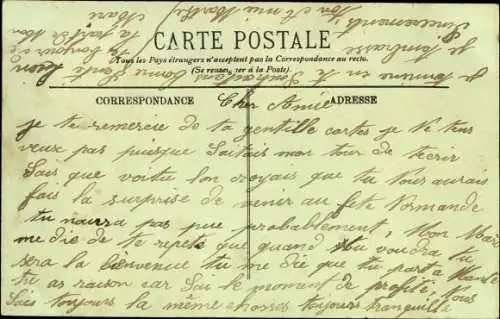 CARTE POSTALE
Tous les Pays étrangers n'acceptent pas la Correspondance au recto.
(Se renseigner à la Poste).
CORRESPONDANCE
ADRESSE
Cher Amie
je te remercie de ta gentille cartes je ne tens
veux pas puisque Saitais mon tour de tecrir
Sais que voitu lon croyais que tu Nous aurais
fais la surprise de venir au fete Normande
tu naura pas pue probablement, Mon Marc
me die de te repete que quand tu voudra tu
sera la bienvenue tu me die que tu part a
tu as raison car Sai le moment de profité, Nous
Sais toujours la même chosses toujours tranquille
je termine en te Souhaitant bonne Santé
je tembrasse
Sincerement
ton Amie Marthe
Marc
ta fait Mon
bonjour